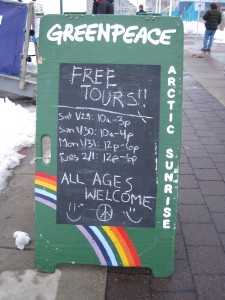 GREENPEACE
FREE
TOURS!!
Sat 1/29: 10a-3p
Sun 1/30: 10a-4p
Mon 1/31: 12p-6p
Tues 2/1: 12p-6p
ALL AGES
WELCOME
ARCTIC SUNRISE